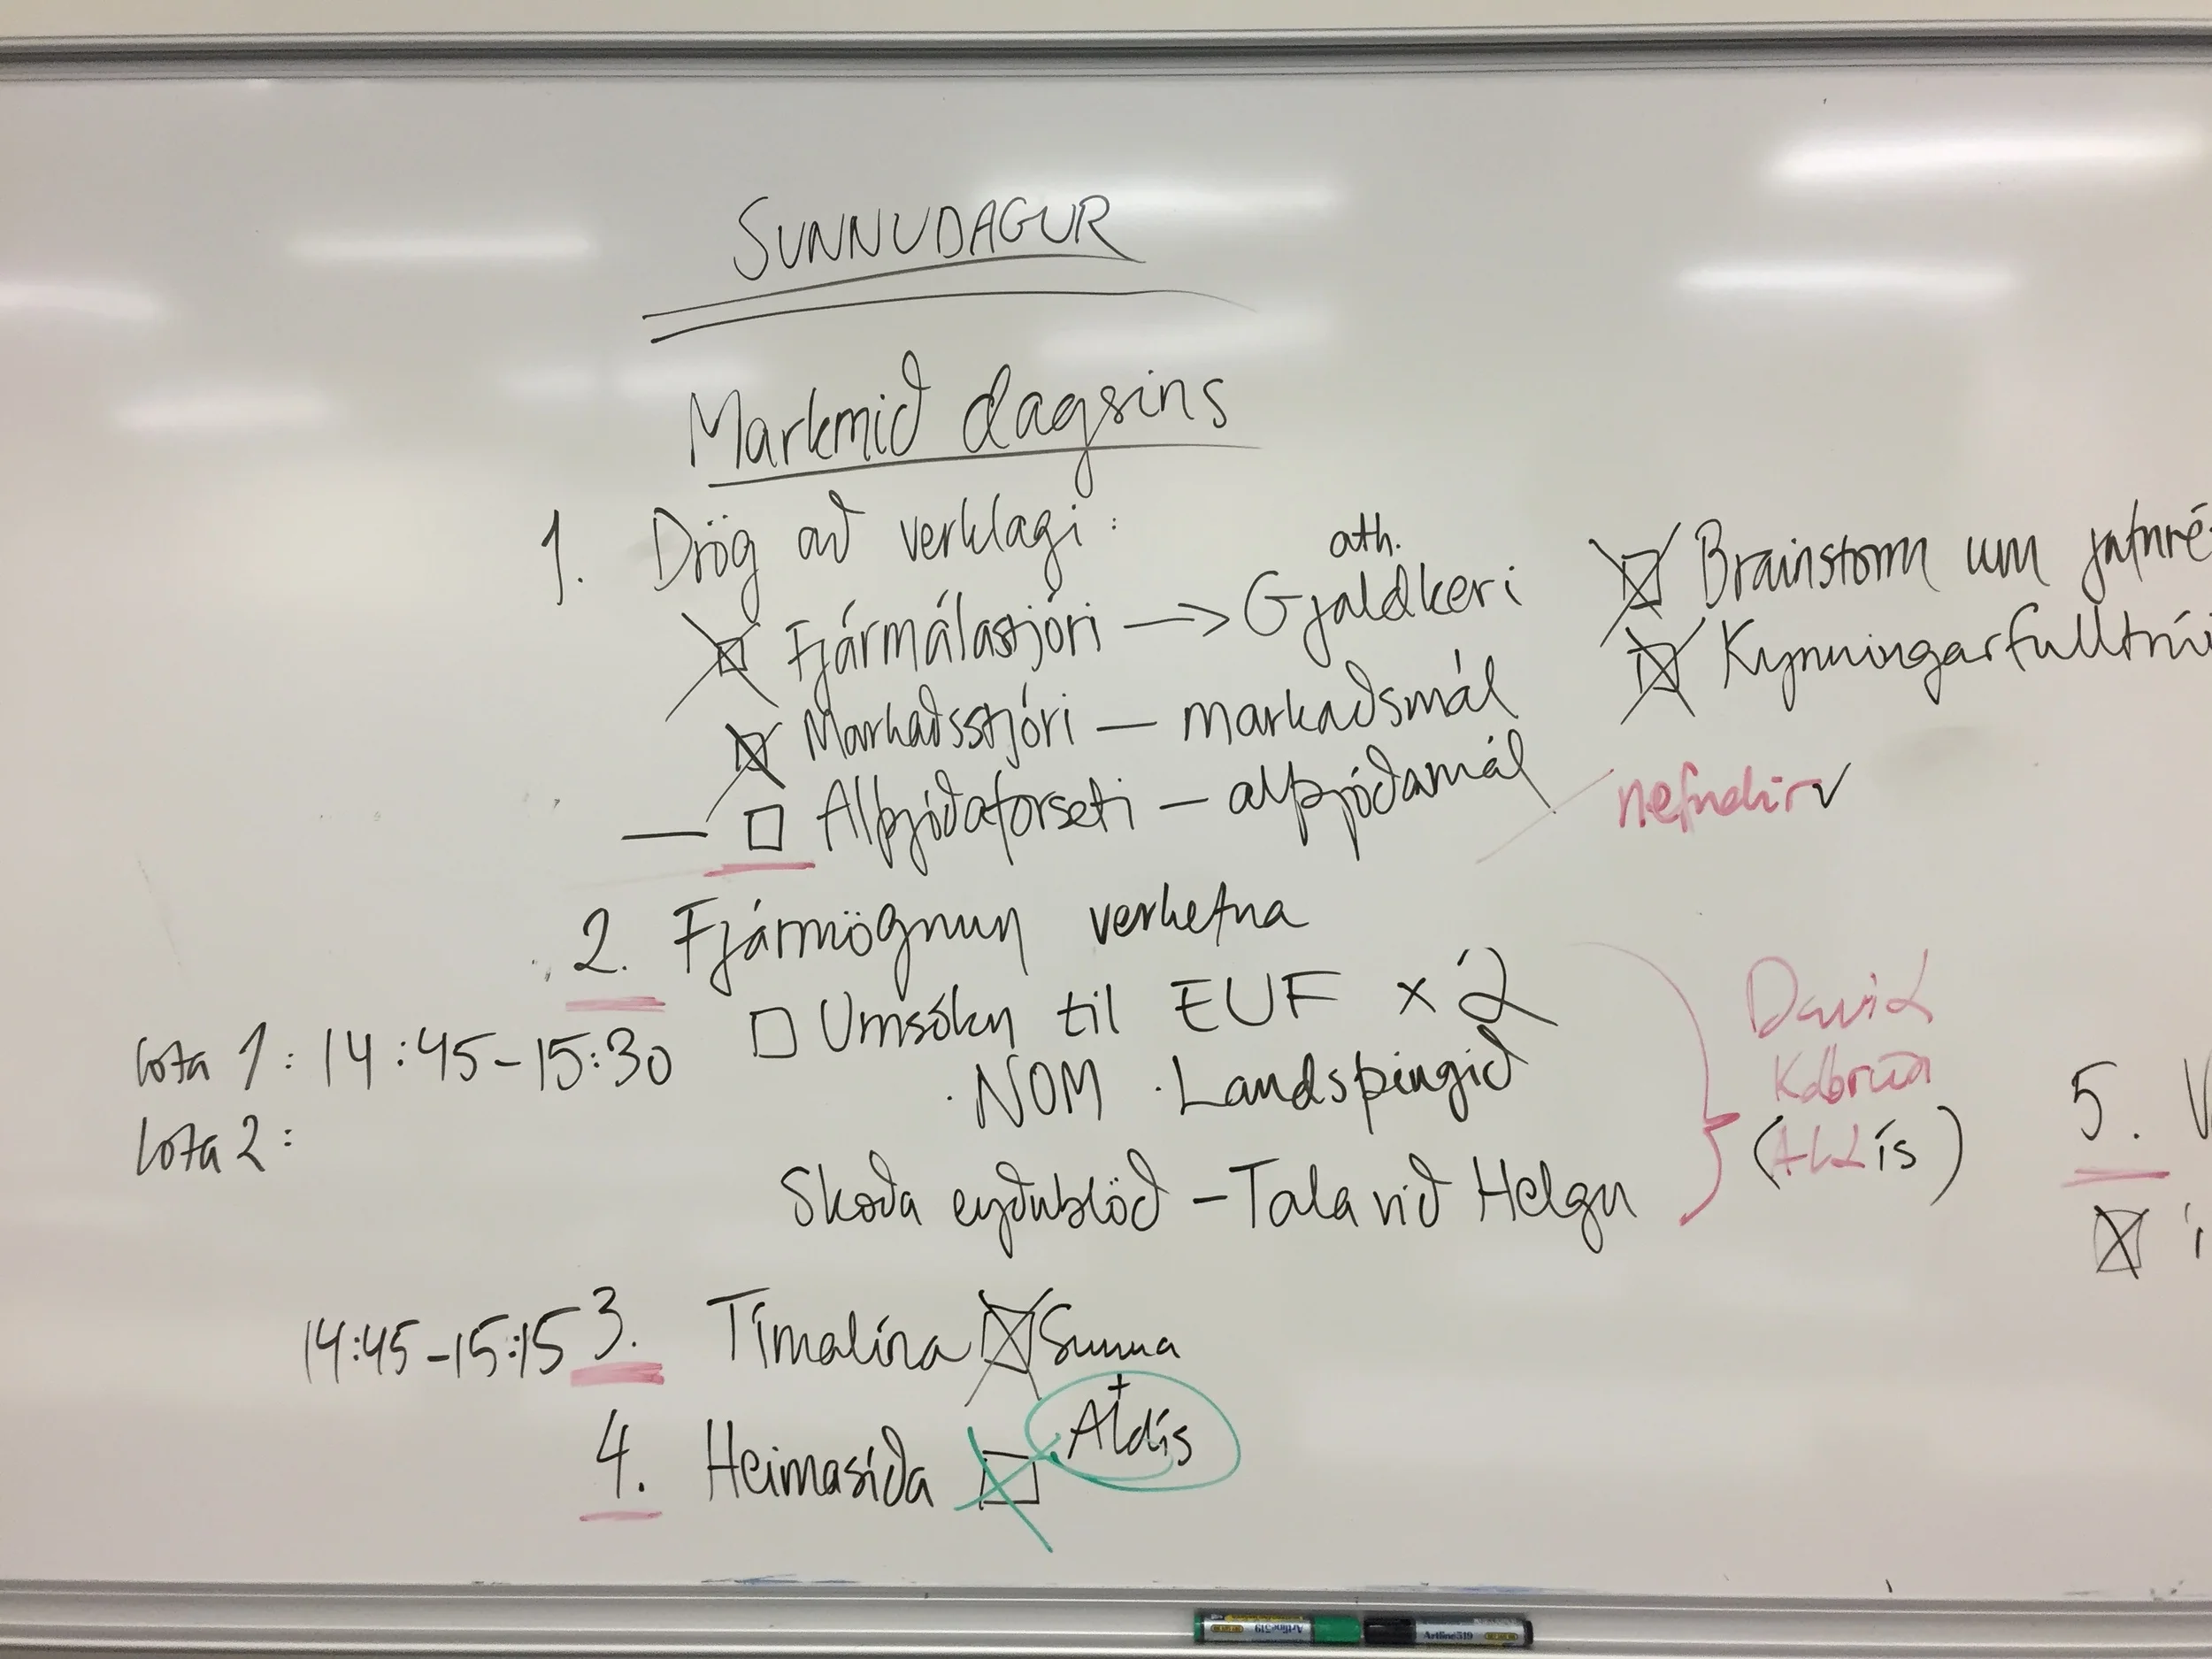 SUNNUDAGUR
Markmið dagsins
1. Dróg að verklagi:
Fjármálastjóri → ath. Gjaldkeri
Markaðsstjóri — markaðsmál
— Alþjóðaforseti — alþjóðamál
Brainstorm um jafnré
Kynningarfulltrúi
nefndir ✓
2. Fjármögnun verkefna
Umsókn til EUF x 2
· NOM · Landsþingið
Skoða eyðublöð - Tala við Helgu
Davíð
(Aldís)
lota 1: 14:45-15:30
lota 2:
14:45-15:15 3. Tímalína Sunna
4. Heimasíða + Aldís
5. V
Artline 519
Artline 519